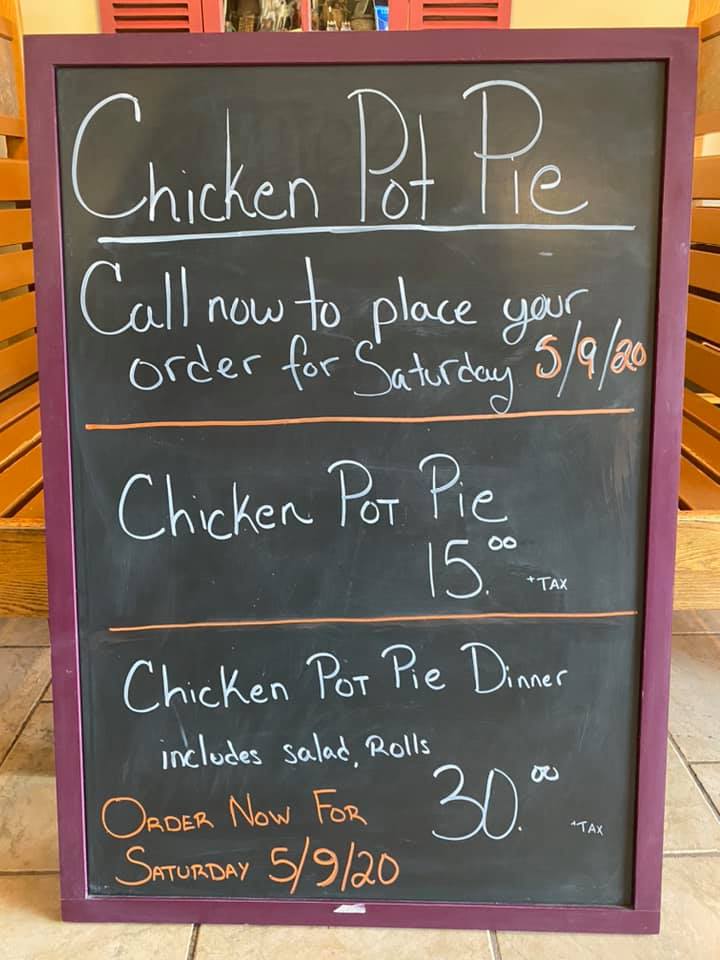 Chicken Pot Pie
Call now to place your
order for Saturday 5/9/20
Chicken Pot Pie
15.00 +TAX
Chicken Pot Pie Dinner
includes salad, Rolls
30.00 +TAX
Order Now For
Saturday 5/9/20